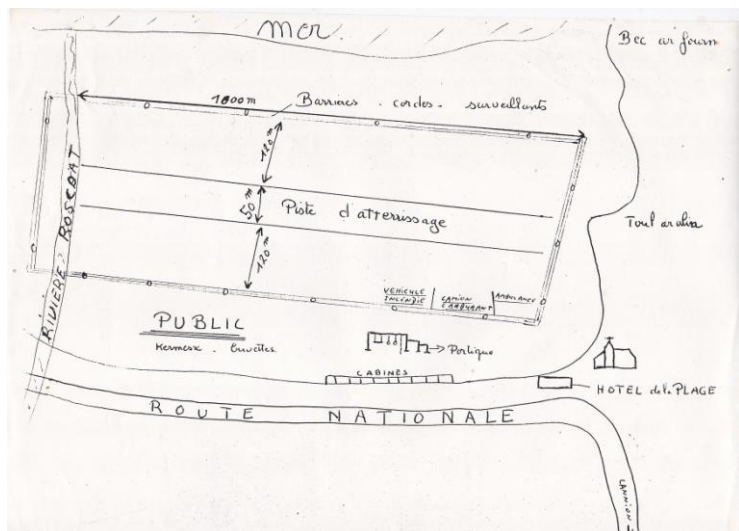 mer.
Bec ar forn
1000m
Barrières . cordes . surveillants
120m
50m
Piste d'atterrissage
120m
RIVIERE ROSCOAT
Toul ar vilin
VEHICULE INCENDIE
CAMION CARBURANT
AMBULANCE
PUBLIC
Kermesse . buvettes
Portique
CABINES
HOTEL de la PLAGE
ROUTE NATIONALE
LANNION